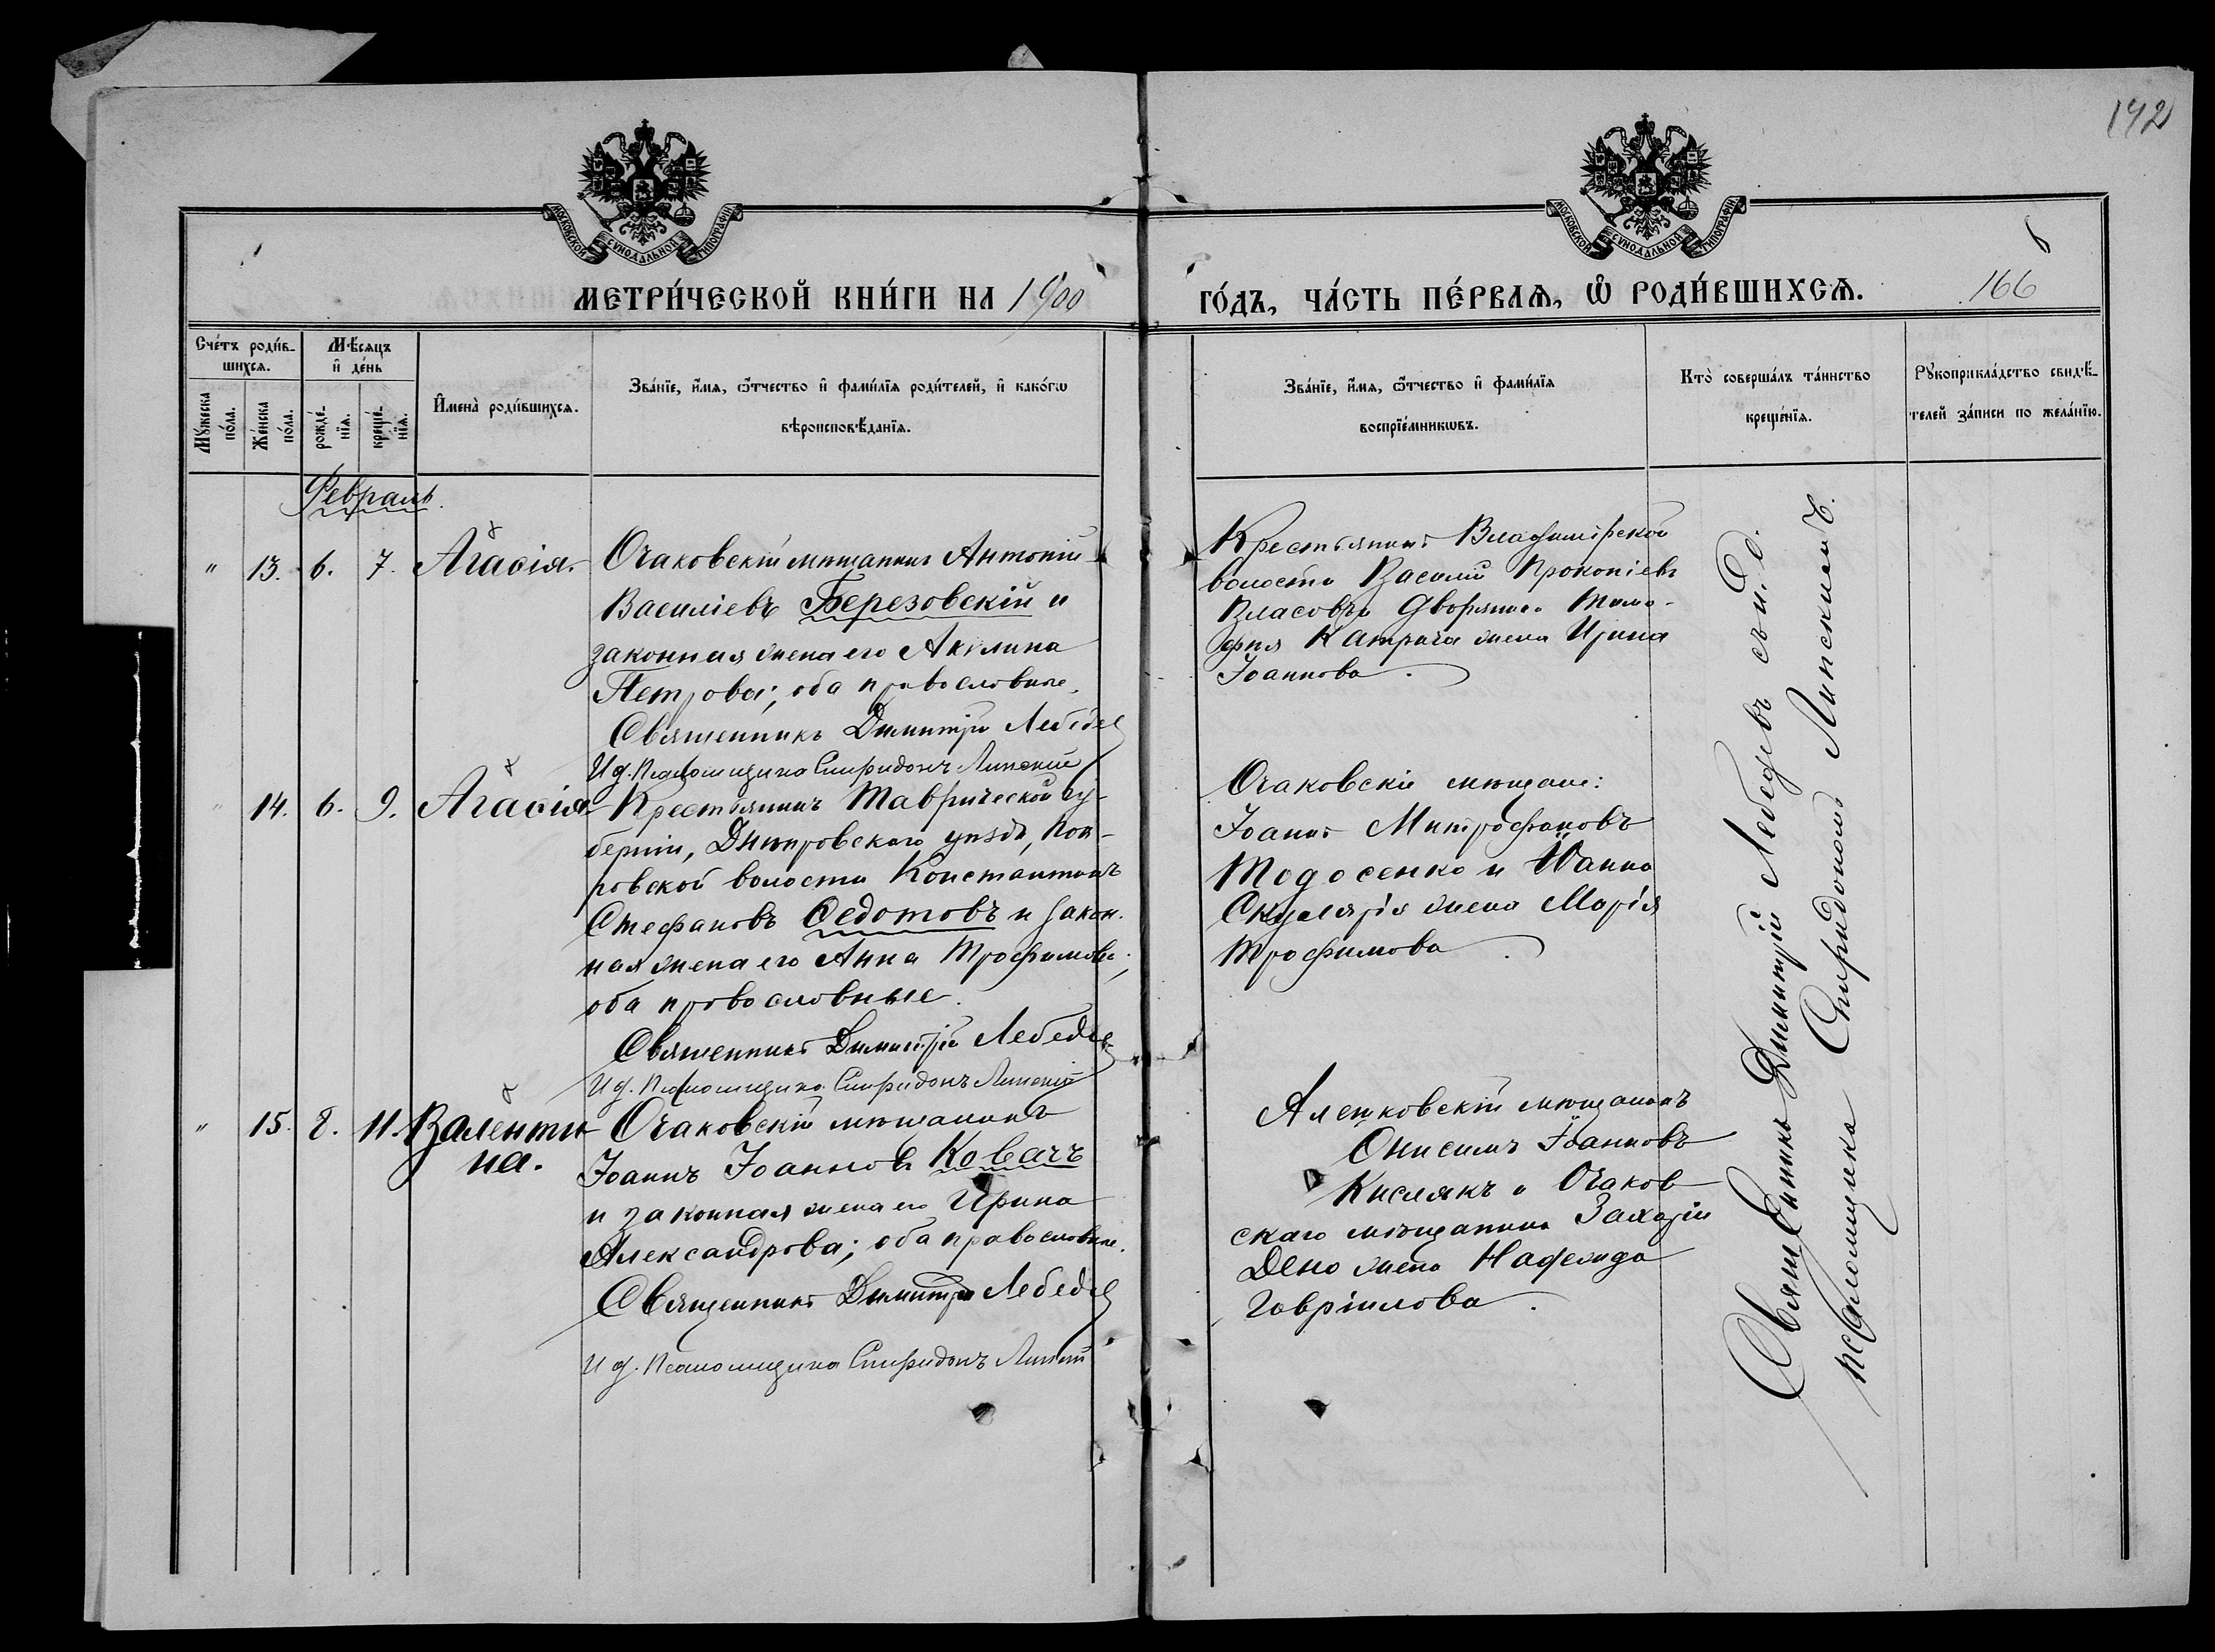 192
МОСКОВСКОЙ СѴНОДАЛЬНОЙ ТИПОГРАФІИ
МОСКОВСКОЙ СѴНОДАЛЬНОЙ ТИПОГРАФІИ
МЕТРИ́ЧЕСКОЙ КНИ́ГИ НА 1900
ГО́ДЪ, ЧА́СТЬ ПЕ́РВАѦ, Ѽ РОДИ́ВШИХСѦ.
166
Сче́тъ роди́в-
шихсѧ.
Мѣ́сѧцъ
и҆ де́нь
Мꙋ́жеска
по́ла.
Же́нска
по́ла.
рожде́-
нїѧ.
креще́-
нїѧ.
И҆мена̀ роди́вшихсѧ.
Зва́нїе, и҆́мѧ, ѻ҆́тчество и҆ фамѝлїѧ роди́телей, и҆ како́гѡ
вѣроисповѣ́данїѧ.
Зва́нїе, и҆́мѧ, ѻ҆́тчество и҆ фамѝлїѧ
воспрїе́мникѡвъ.
Кто̀ соверша́лъ та́инство
креще́нїѧ.
Рꙋкоприкла́дство свидѣ́-
телей за́писи по жела́нїю.
Февраль.
" 13. 6. 7. Агасія.
Очаковскій мѣщанинъ Антоній
Василіевъ Березовскій и
законная жена его Акилина
Петрова; оба православные.
Священникъ Димитрій Лебедев
И д. Псаломщика Спиридонъ Липскій
Крестьянинъ Владимірской
волости Василій Прокопіевъ
Власовъ и Дворянина Тимо-
фея Катрича жена Ирина
Іоаннова.
" 14. 6. 9. Агасія
Крестьянинъ Таврической гу-
берніи, Днѣпровскаго уѣзда, Пок-
ровской волости Константинъ
Стефановъ Федотовъ и закон-
ная жена его Анна Трофимова;
оба православные.
Священникъ Димитрій Лебедев
И д. Псаломщика Спиридонъ Липскій
Очаковскіе мѣщане:
Іоаннъ Митрофановъ
Тодосенко и Іоанна
Скулярія жена Марія
Трофимова.
" 15. 8. 11. Валенти
на.
Очаковскій мѣщанинъ
Іоаннъ Іоанновъ Ковачъ
и законная жена его Ирина
Александрова; оба православные.
Священникъ Димитрій Лебедев
И д. Псаломщика Спиридонъ Липскій
Алешковскій мѣщанинъ
Онисимъ Іоанновъ
Кислякъ и Очаков
скаго мѣщанина Захарія
Дено жена Надежда
Гавріилова.
Священникъ Димитрій Лебедевъ съ и. д.
псаломщика Спиридономъ Липскимъ.